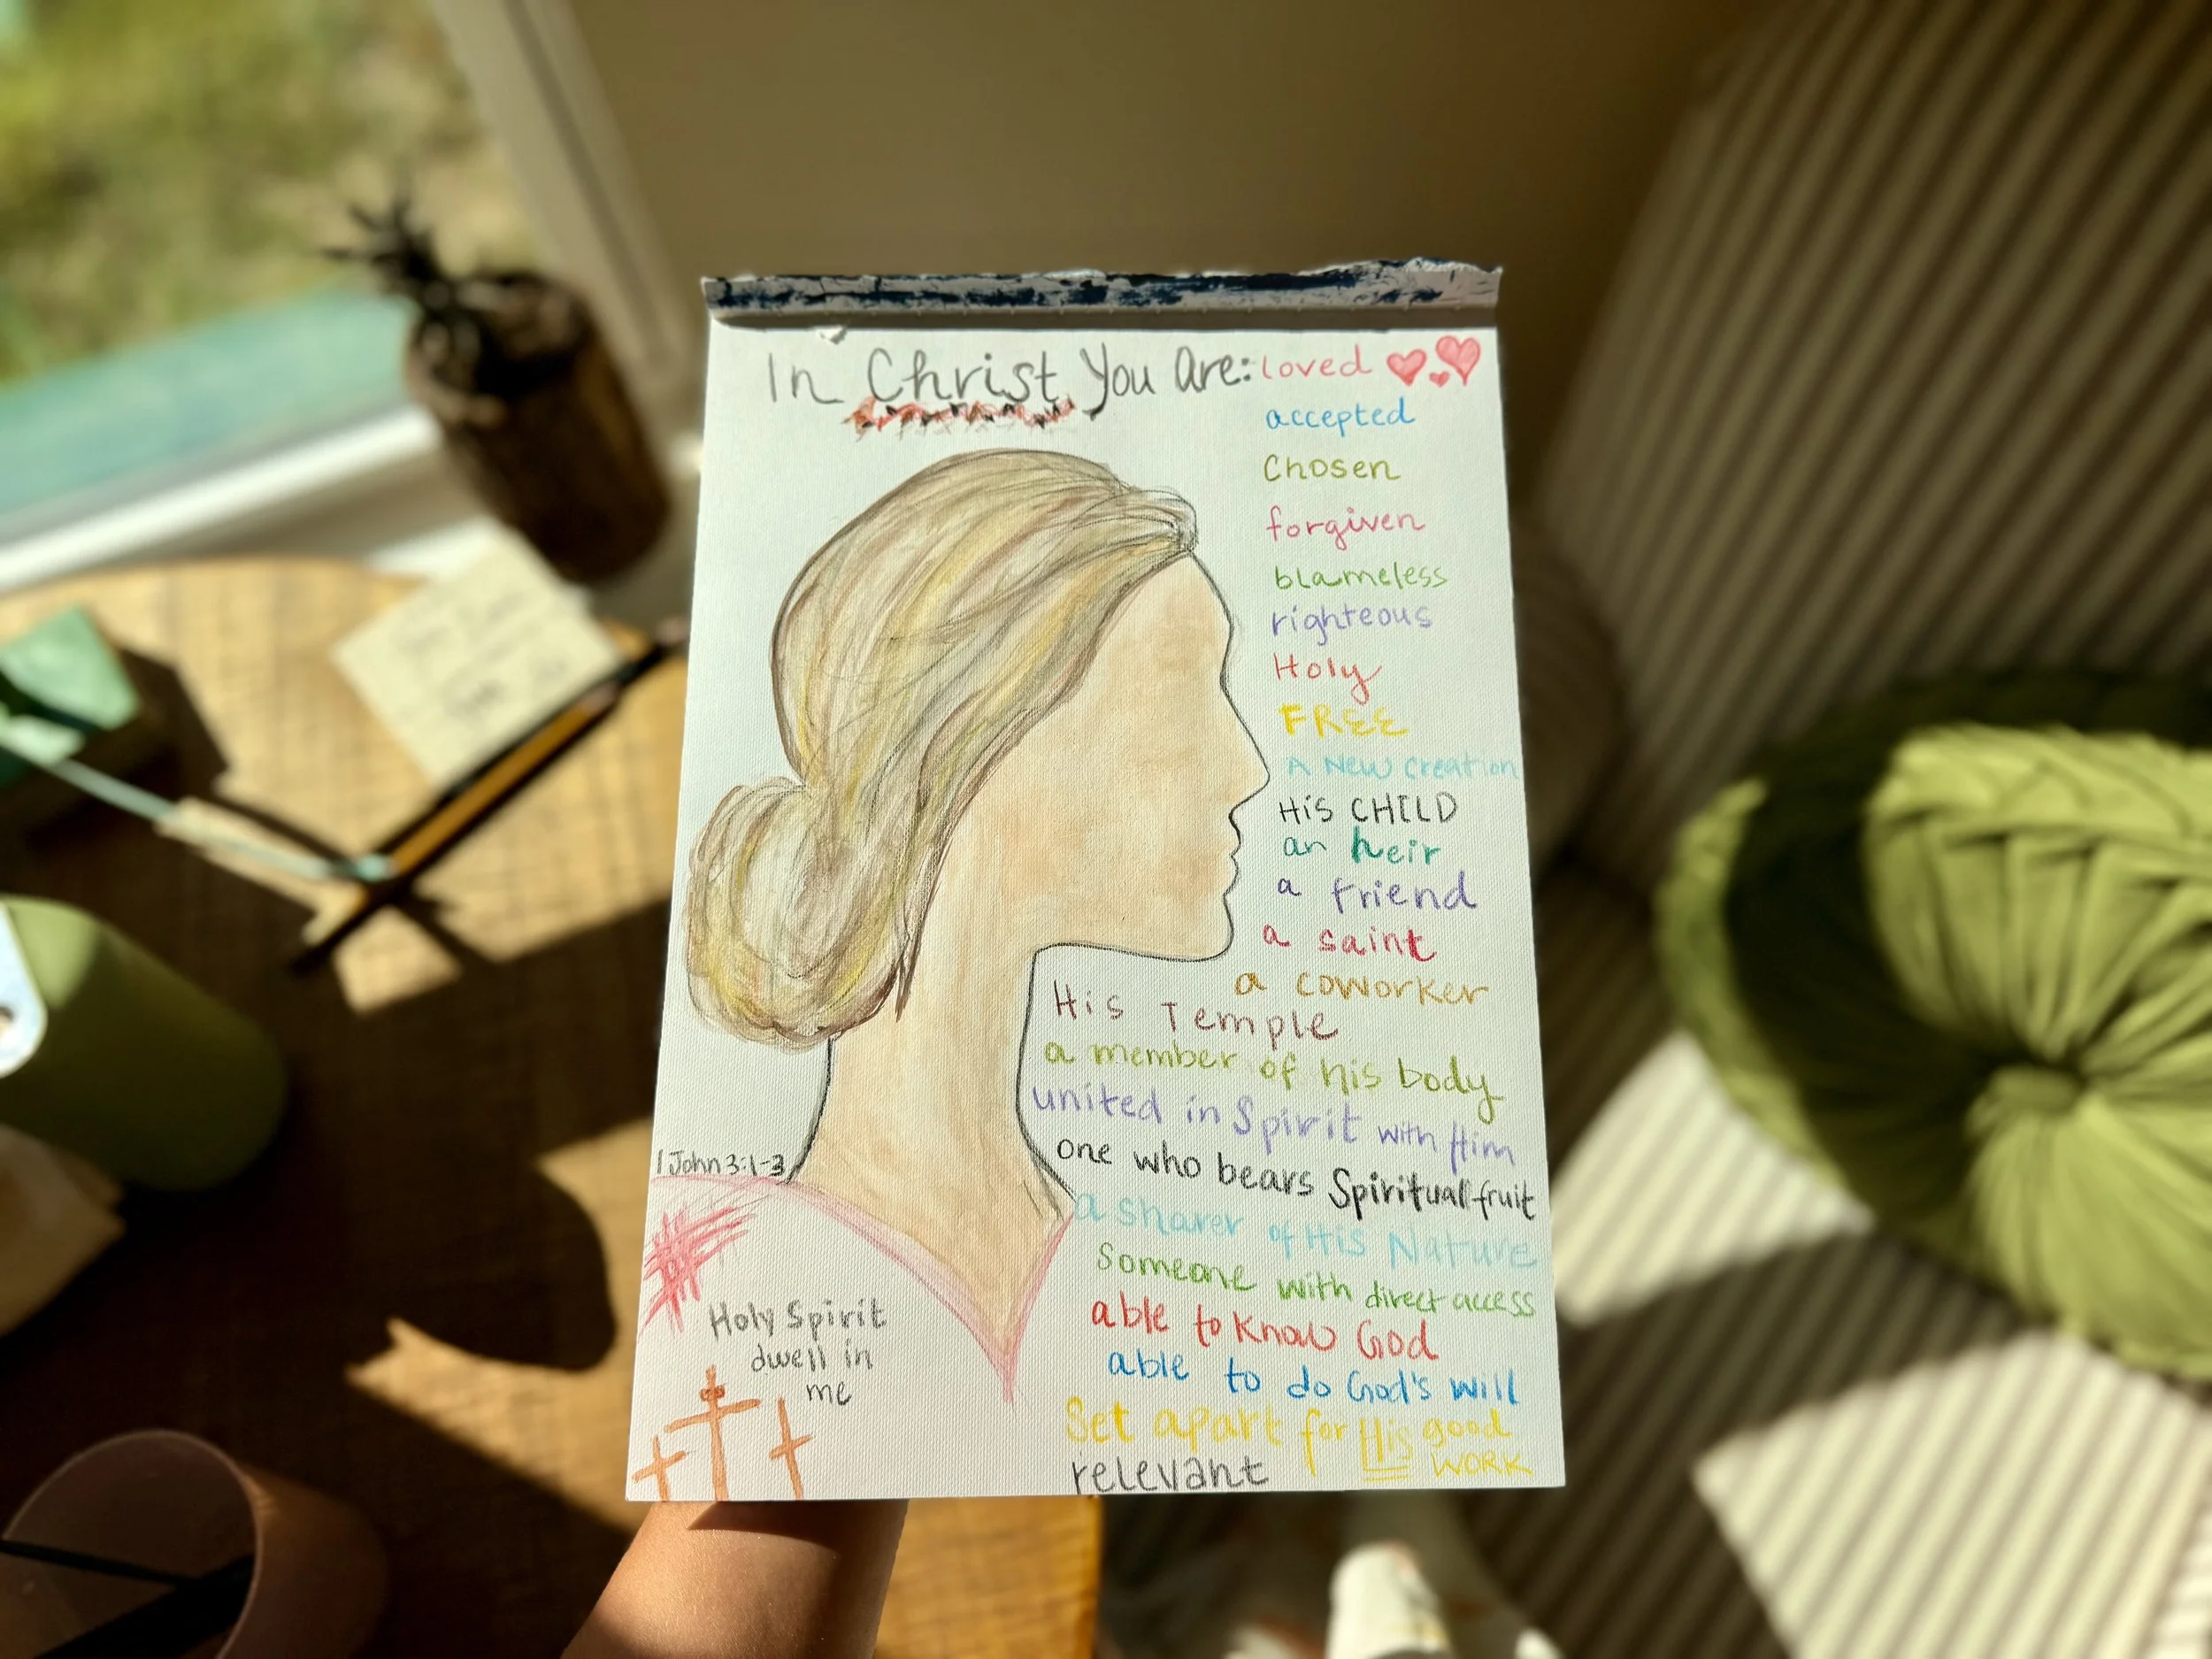 In Christ You Are: loved
accepted
Chosen
forgiven
blameless
righteous
Holy
FREE
A New Creation
His CHILD
an heir
a friend
a saint
a coworker
His Temple
a member of his body
united in Spirit with Him
one who bears Spiritual fruit
a sharer of His Nature
Someone with direct access
able to know God
able to do God's will
Set apart for His good
WORK
relevant
1 John 3:1-3
Holy Spirit
dwell in
me